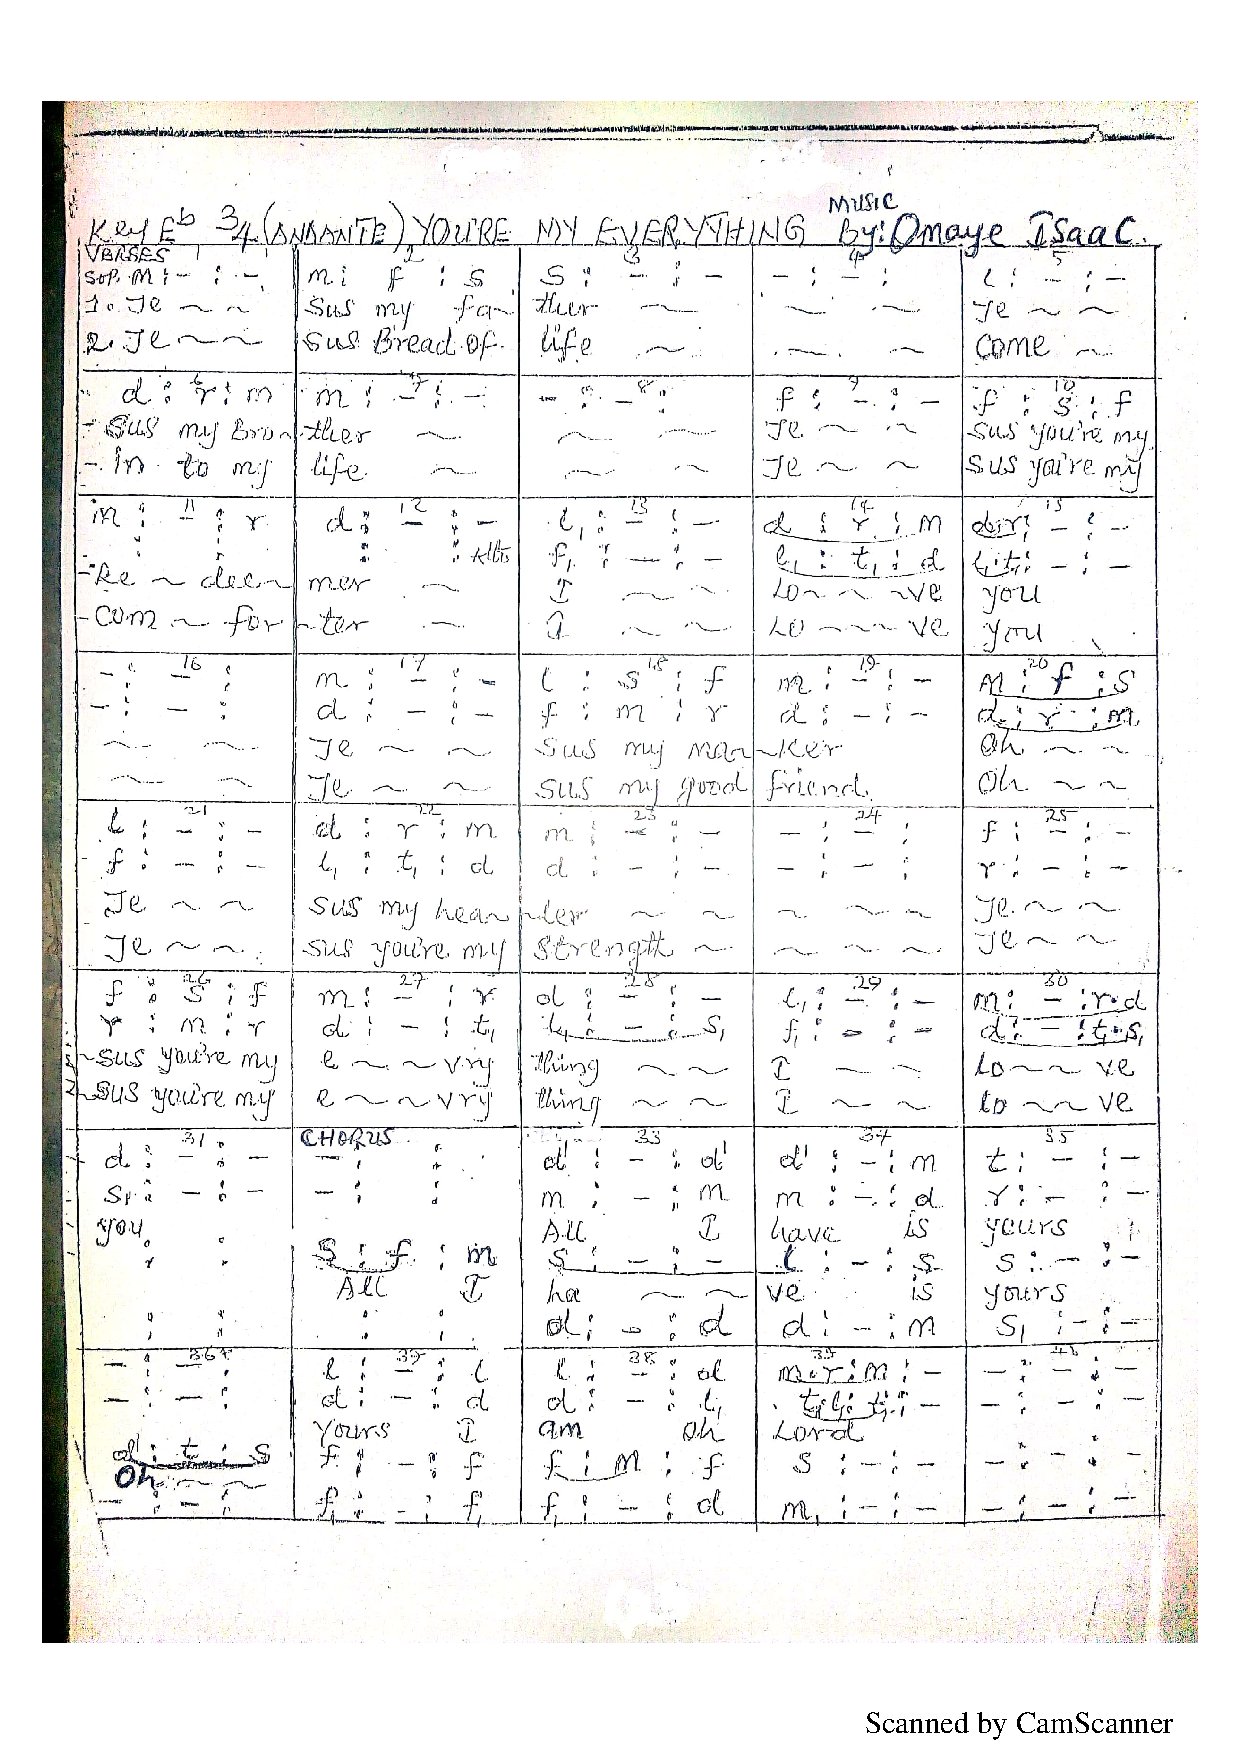 MUSIC
Key Eb 3/4 (ANDANTE) YOU'RE MY EVERYTHING By: Omaye Isaac.
VERSES 1 2 3 4 5
Sop. m : - : - m : f : s s : - : - - : - : l : - : -
1. Je ~ ~ sus my fa~ ther ~ ~ ~ Je ~ ~
2. Je ~ ~ sus Bread of life ~ ~ ~ come ~
6 7 8 9 10
d : r : m m : - : - - : - : f : - : - f : s : f
- sus my Bro~ ther ~ ~ ~ Je ~ ~ sus you're my
- in to my life ~ ~ ~ Je ~ ~ sus you're my
11 12 13 14 15
m : - : r d : - : - l, : - : - d : r : m d.r : - : -
: : : : Alto f, : - : - l, : t, : d l,.t, : - : -
- Re ~ deem mer ~ I ~ ~ Lo ~ ~ ~ ve you
- Com ~ for ~ ter ~ I ~ ~ Lo ~ ~ ~ ve you
16 17 18 19 20
- : - : m : - : - l : s : f m : - : - m : f : s
- : - : d : - : - f : m : r d : - : - d : r : m
~ ~ Je ~ ~ sus my ma ~ ker Oh ~ ~
~ ~ Je ~ ~ sus my good friend. Oh ~ ~
21 22 23 24 25
l : - : - d : r : m m : - : - - : - : f : - : -
f : - : - l, : t, : d d : - : - - : - : r : - : -
Je ~ ~ sus my hea ~ ler ~ ~ ~ ~ ~ Je ~ ~
Je ~ ~ sus you're my strength ~ ~ ~ ~ Je ~ ~
26 27 28 29 30
f : s : f m : - : r d : - : - l, : - : - m : - : r.d
r : m : r d : - : t, l, : - : s, f, : - : - d : - : t,.s,
1 ~ sus you're my e ~ ~ vry thing ~ ~ I ~ ~ Lo ~ ~ ve
2 ~ sus you're my e ~ ~ vry thing ~ ~ I ~ ~ lo ~ ~ ve
31 CHORUS 33 34 35
d : - : - - : : d' : - : d' d' : - : m t : - : -
s, : - : - - : : m : - : m m : - : d r : - : -
you. All I have is yours
: : s : f : m s : - : - l : - : s s : - : -
All I ha ~ ~ ve is yours
: : : : d : - : d d : - : m s, : - : -
36 37 38 39 40
- : - : l : - : l l : - : d m.r : m : - - : - : -
- : - : d : - : d d : - : l, t,.l, : t, : - - : - : -
yours I am Oh Lord
d' : t : s f : - : f f : m : f s : - : - - : - : -
Oh ~ ~
- : - : f, : - : f, f, : - : d m, : - : - - : - : -
Scanned by CamScanner